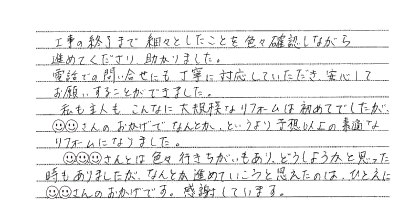 工事の終了まで細々としたことを色々確認しながら
進めてくださり、助かりました。
電話での問い合せにも丁寧に対応していただき、安心して
お願いすることができました。
私も主人も、こんなに大規模なリフォームは初めてでしたが、
☺☺さんのおかげでなんとか、というより予想以上の素適な
リフォームになりました。
☺☺☺さんとは色々行きちがいもあり、どうしようかと思った
時もありましたが、なんとか進めていこうと思えたのは、ひとえに
☺☺さんのおかげです。感謝しています。